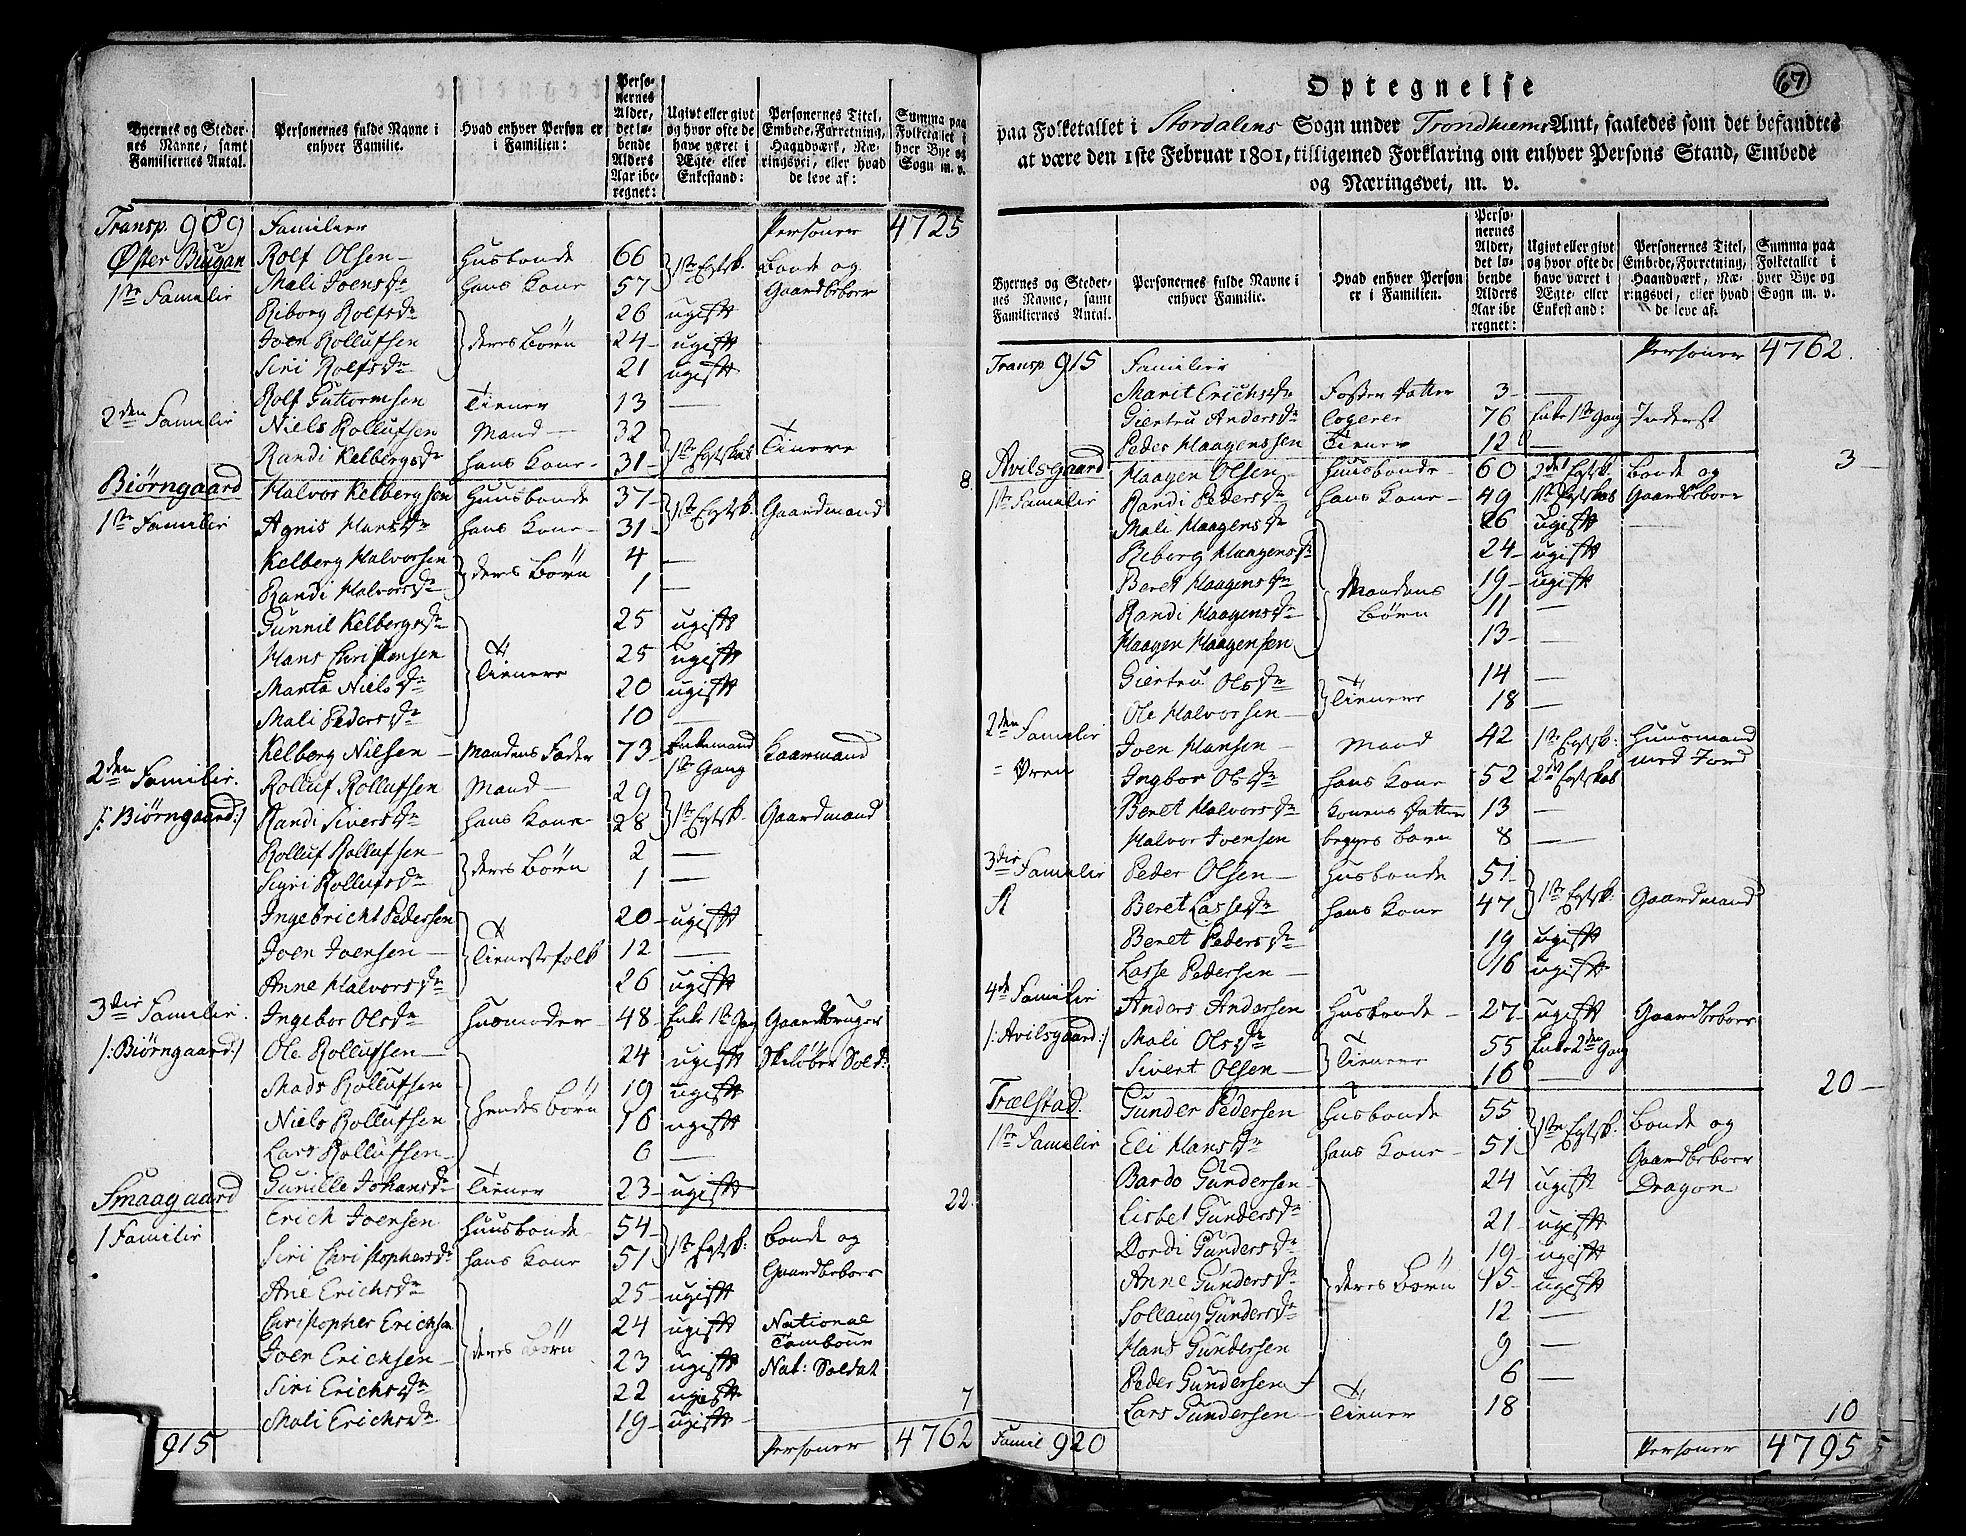 Byernes og Steder-
nes Navne, samt
Familiernes Antal.
Personernes fulde Navne i
enhver Familie.
Hvad enhver Person er
i Familien:
Perso-
nernes
Alder,
det lø-
bende
Alders
Aar ibe-
regnet:
Ugivt eller givt
og hvor ofte de
have været i
Ægte- eller
Enkestand:
Personernes Titel,
Embede, Forretning,
Haandværk, Næ-
ringsvei, eller hvad
de leve af:
Summa paa
Folketallet i
hver Bye og
Sogn m. v.
Transp. 909 Familier Personer 4725
Øster Biugan Rolf Olsen Husbonde 66 1ste Egtsk. Bonde og
1ste Familie Mali Joensdr hans Kone 57 Gaardbeboer
Riborg Rolfsdr 26 ugift
Joen Rollufsen deres Børn 24 ugift
Siri Rolfsdr 21 ugift
Rolf Guttormsen Tiener 13 —
2den Familie Niels Rollufsen Mand 32 1ste Egtskab Tienere
Randi Kelbergsdr hans Kone 31 8
Biørngaard Halvor Kelbergsen Huusbonde 37 1ste Egtsk. Gaardmand
1ste Familie Agnis Hansdr hans Kone 31
Kelberg Halvorsen deres Børn 4 —
Randi Halvorsdr 1 —
Gunnil Kelbergsdr 25 ugift
Hans Christensen Tienere 25 ugift
Marta Nielsdr 20 ugift
Mali Pedersdr 10 —
Kelberg Nilsen Mandens Fader 73 Enkemand 1ste Gang Kaarmand
2den Familie. Rolluf Rollufsen Mand 29 1ste Egtsk. Gaardmand
/: Biørngaard :/ Randi Siversdr hans Kone 28
Rolluf Rollufsen deres Børn 2 —
Sigri Rollufsdr 1 —
Ingebricht Pedersen 20 ugift
Joen Joensen Tienestefolk 12 —
Anne Halvorsdr 26 ugift
3die Familie. Ingebor Olsdr Husmoder 48 Enke 1ste Gang Gaardbruger
/: Biørngaard :/ Ole Rollufsen 24 ugift Skeløber Sold:
Mads Rollufsen 19 ugift
Niels Rollufsen hendes Børn 16 ugift
Lars Rollufsen 6 —
Gunille Johansdr Tiener 23 ugift 22.
Smaagaard Erich Joensen Huusbonde 54 1ste Egtsk: Bonde og
1 Familie Siri Christophersdr hans Kone 51 Gaardbeboer
Ane Erichsdr 25 ugift
Christopher Erichsen 24 ugift National Tambour
Joen Erichsen deres Børn 23 ugift Nat: Soldat
Siri Erichsdr 22 ugift
Mali Erichsdr 19 ugift 7
915 Personer 4762
67
Optegnelse
paa Folketallet i Stordalens Sogn under Trondhiems Amt, saaledes som det befandtes
at være den 1ste Februar 1801, tilligemed Forklaring om enhver Persons Stand, Embede
og Næringsvei, m. v.
Byernes og Steder-
nes Navne, samt
Familiernes Antal.
Personernes fulde Navne i
enhver Familie.
Hvad enhver Person
er i Familien.
Perso-
nernes
Alder,
det lø-
bende
Alders
Aar ibe-
regnet:
Ugivt eller givt
og hvor ofte de
have været i
Ægte- eller
Enkestand:
Personernes Titel,
Embede, Forretning,
Haandværk, Næ-
ringsvei, eller hvad
de leve af:
Summa paa
Folketallet i
hver Bye og
Sogn m. v.
Transp 915 Familier Personer 4762.
Marit Erichsdr Foster Datter 3 —
Giertru Andersdr logerer 76 Enke 1ste Gang Inderst
Peder Haagenssen Tiener 12 — 3
Avilsgaard Haagen Olsen Huusbonde 60 2det Egtsk. Bonde og
1ste Familie Randi Pedersdr hans Kone 49 1ste Egtskab Gaardbeboer
Mali Haagensdr 26 ugift
Reborg Haagensdr 24 ugift
Beret Haagensdr Mandens 19 ugift
Randi Haagensdr Børn 11 —
Haagen Haagensen 13 —
Giertru Olsdr Tienere 14 —
Ole Halvorsen 18 —
2den Familie Joen Hansen Mand 42 1ste Egtsk: Huusmand
= Øren Ingbor Olsdr hans Kone 52 2det Egtskab med Jord
Beret Halvorsdr Konens Datter 13 —
Halvor Joensen begges Barn 8 —
3die Familie Peder Olsen Husbonde 51 1ste Egtsk: Gaardmand
Beret Lassedr hans Kone 47
Beret Pedersdr 19 ugift
Lasse Pedersen 16 ugift
4de Familie Anders Andersen Husbonde 27 ugift Gaardbeboer
/: Avilsgaard :/ Mali Olsdr Tienere 55 Enke 2den Gang
Sivert Olsen 16 — 20
Trælstad. Gunder Pedersen Husbonde 55 1ste Egtsk: Bonde og
1ste Familie Eli Hansdr hans Kone 51 Gaardbeboer
Bardo Gundersen 24 ugift Dragon
Lisbet Gundersdr 21 ugift
Dordi Gundersdr 19 ugift
Anne Gundersdr deres Børn 15 ugift
Sollaug Gundersdr 12 —
Hans Gundersen 9 —
Peder Gundersen 6 —
Lars Gundersen Tiener 18 10
Famil 920 Personer 4795